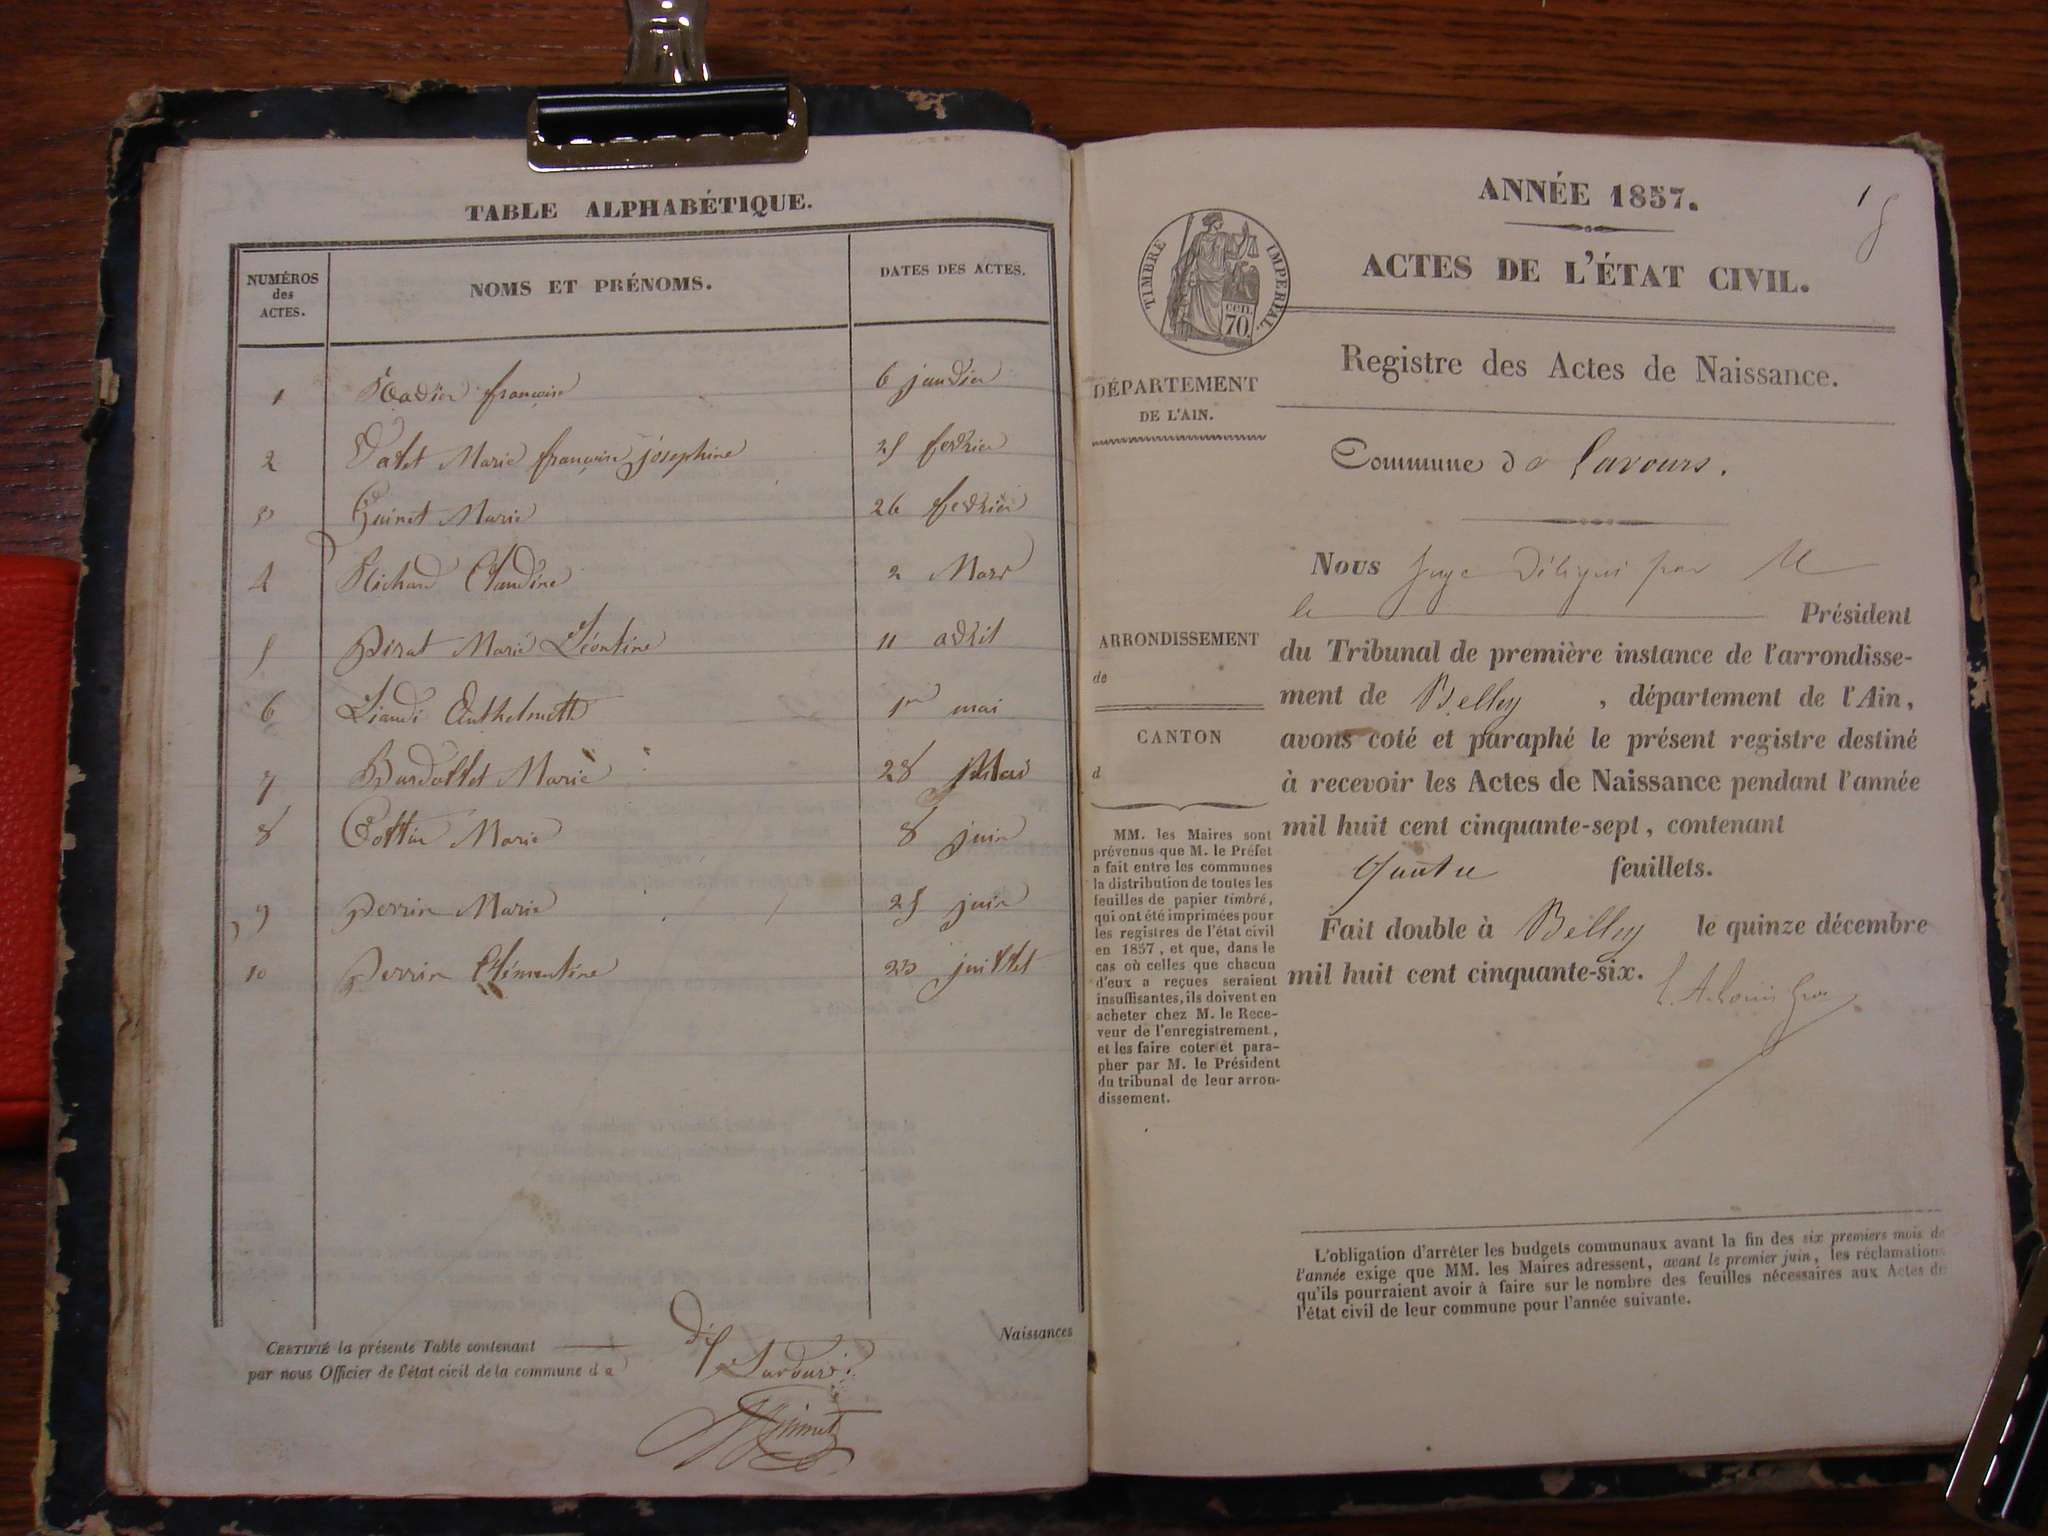 TABLE ALPHABÉTIQUE.
NUMÉROS
des
ACTES.
NOMS ET PRÉNOMS.
DATES DES ACTES.
1 françoise 6 janvier
2 Marie françoise joséphine 25 fevrier
3 Guinet Marie 26 fevrier
4 Richard Claudine 2 Mars
5 Marie Léontine 11 avril
6 1er mai
7 Bardollet Marie 28 Mai
8 Cottin Marie 8 juin
9 Perrin Marie 25 juin
10 Perrin Clémentine 23 juillet
CERTIFIÉ la présente Table contenant Dix Naissances
par nous Officier de l'état civil de la commune d e Lavours
ANNÉE 1857.
1
ACTES DE L'ÉTAT CIVIL.
TIMBRE IMPÉRIAL.
CEN.
70
Registre des Actes de Naissance.
DÉPARTEMENT
DE L'AIN.
Commune de Lavours.
Nous Juge Délégué par M
le Président
du Tribunal de première instance de l'arrondisse-
ment de Belley , département de l'Ain,
avons coté et paraphé le présent registre destiné
à recevoir les Actes de Naissance pendant l'année
mil huit cent cinquante-sept, contenant
quatre feuillets.
Fait double à Belley le quinze décembre
mil huit cent cinquante-six.
ARRONDISSEMENT
de
CANTON
d
MM. les Maires sont
prévenus que M. le Préfet
a fait entre les communes
la distribution de toutes les
feuilles de papier timbré,
qui ont été imprimées pour
les registres de l'état civil
en 1857, et que, dans le
cas où celles que chacun
d'eux a reçues seraient
insuffisantes, ils doivent en
acheter chez M. le Rece-
veur de l'enregistrement,
et les faire coter et para-
pher par M. le Président
du tribunal de leur arron-
dissement.
L'obligation d'arrêter les budgets communaux avant la fin des six premiers mois de
l'année exige que MM. les Maires adressent, avant le premier juin, les réclamations
qu'ils pourraient avoir à faire sur le nombre des feuilles nécessaires aux Actes de
l'état civil de leur commune pour l'année suivante.